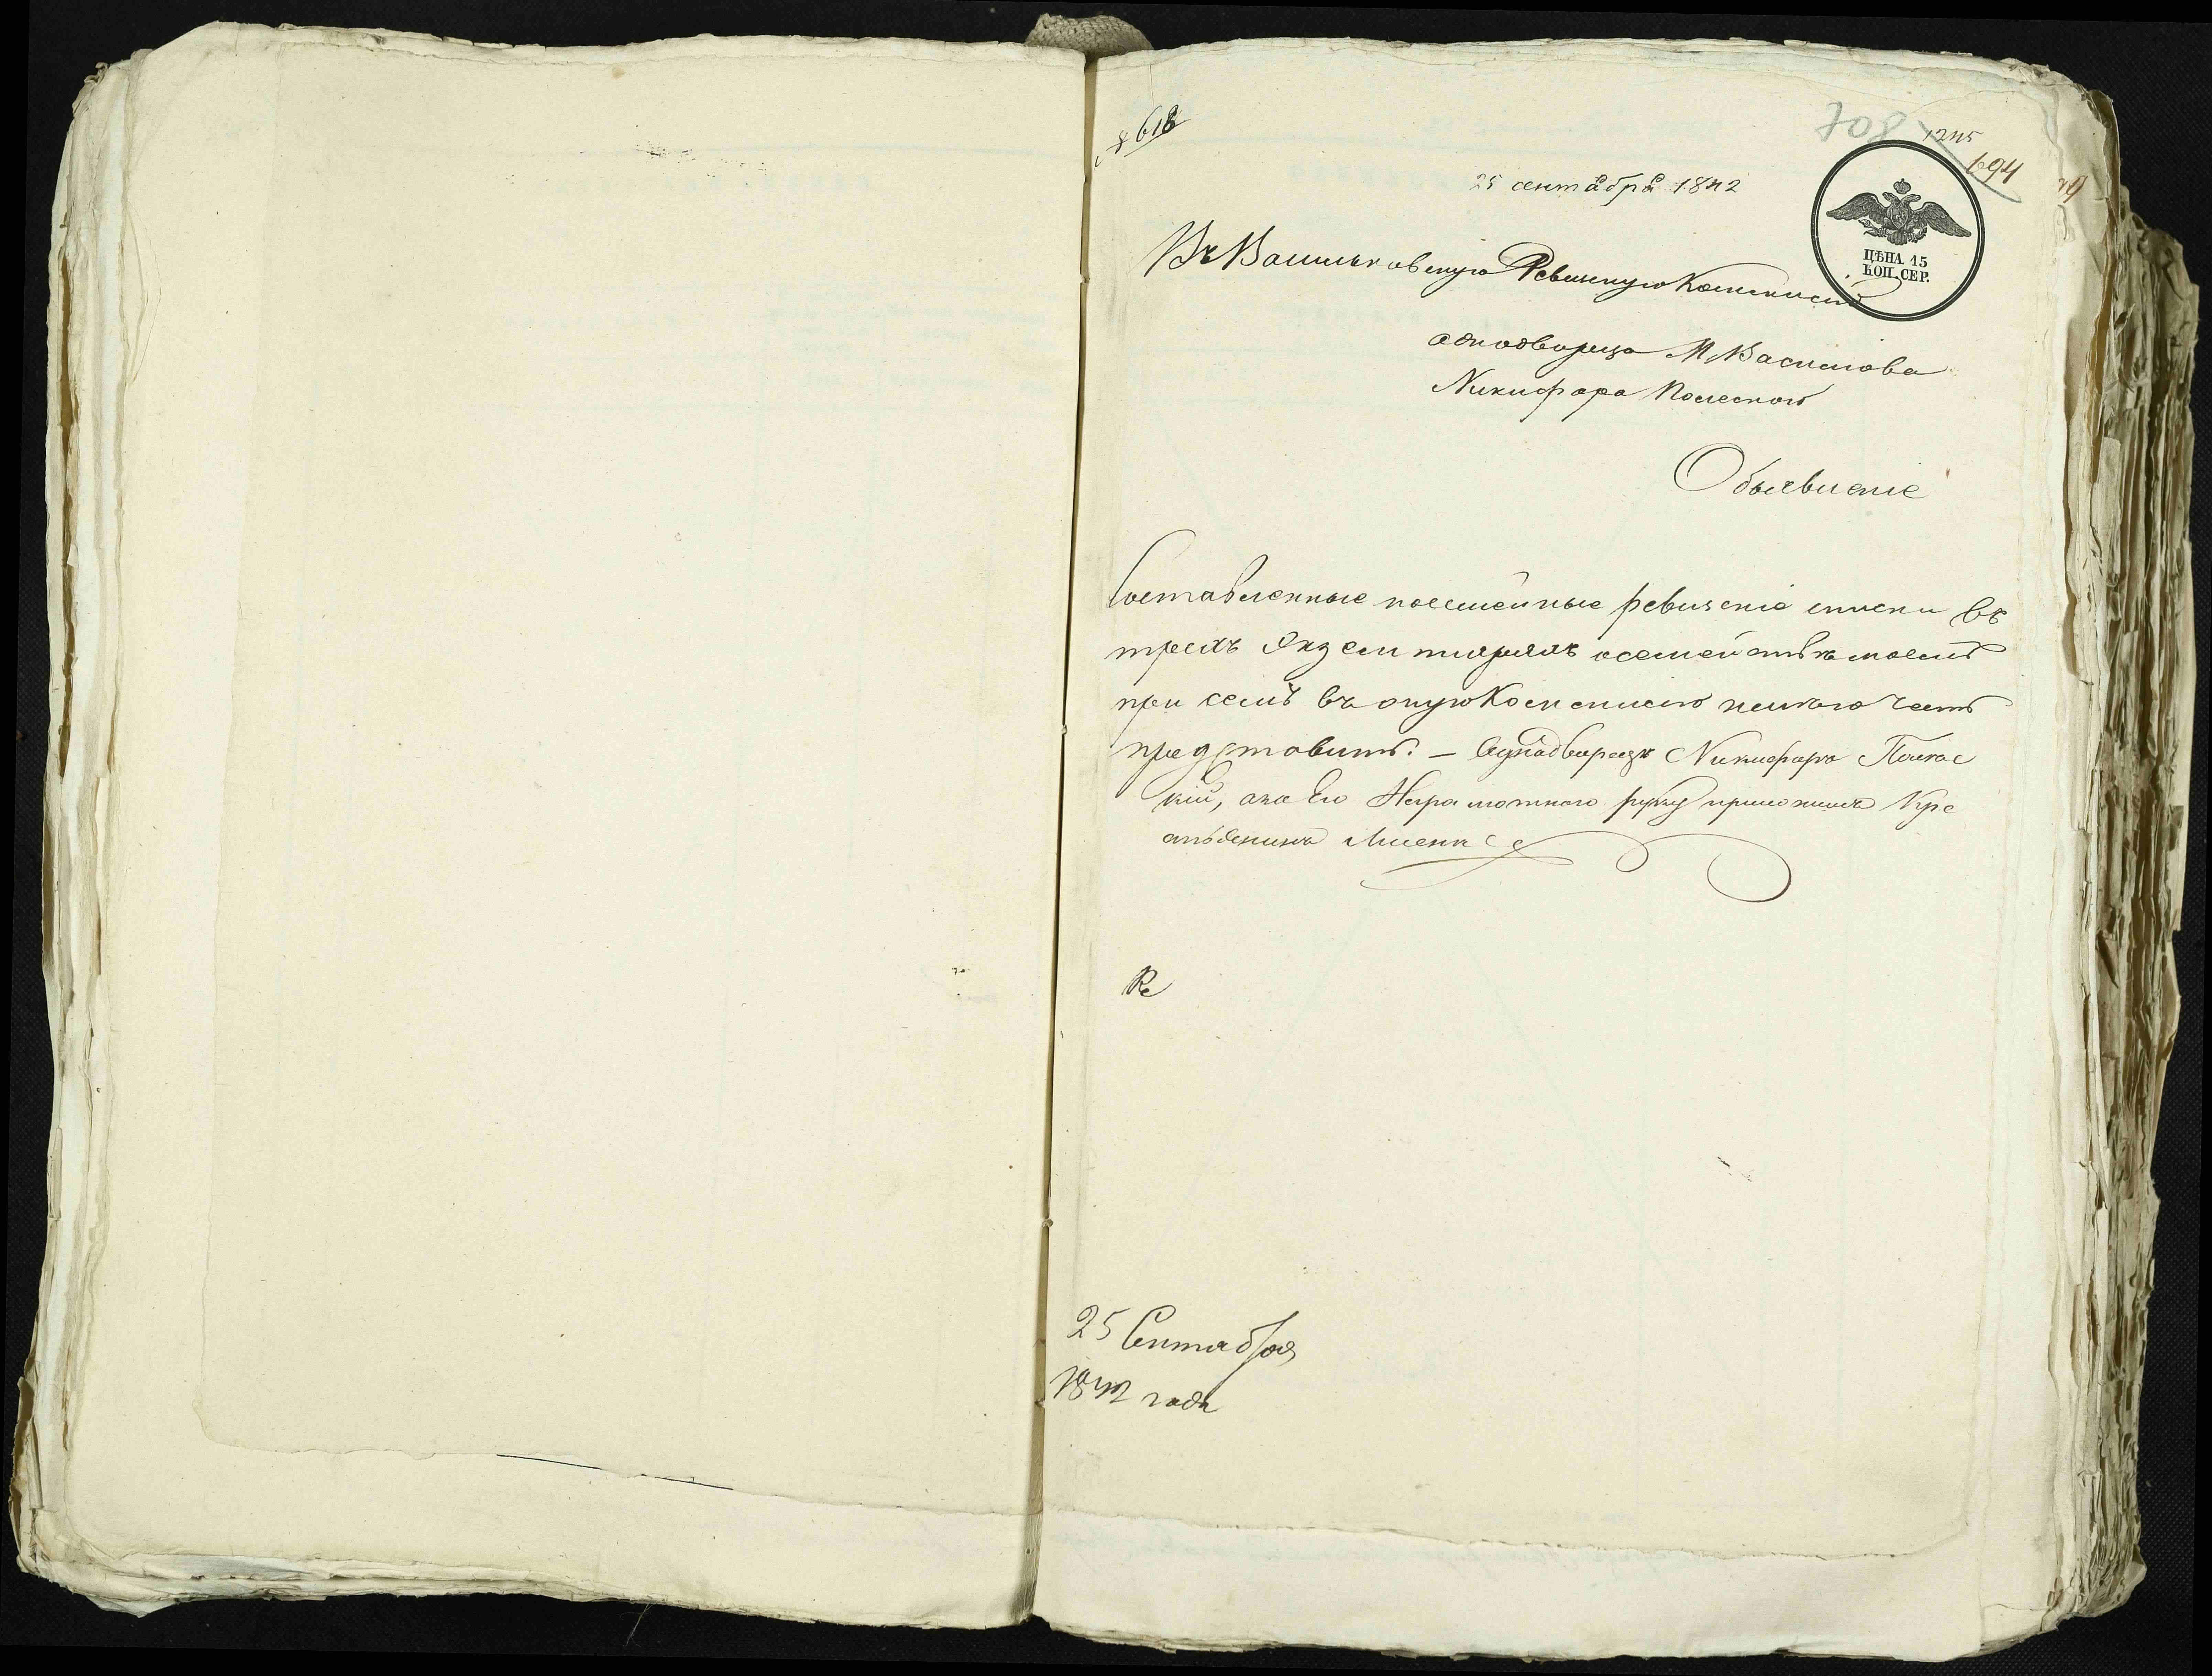 618
708
1245
694
25 сентября 1842
ЦѢНА 15
КОП. СЕР.
Въ Васильковскую Ревизкую Комисию
однодворца М Василова
Никифора Полеского
Обьевление
Составленные посемейные ревизские списки въ
трехъ Экземплярахъ осемействѣ моемъ
при семъ въ оную Комисию честь
представить. — Однодворецъ Никифоръ Полес
кій, а за Его Неграмотного руку приложилъ Кре
стьянинъ
Ре
25 Сентября
1842 года